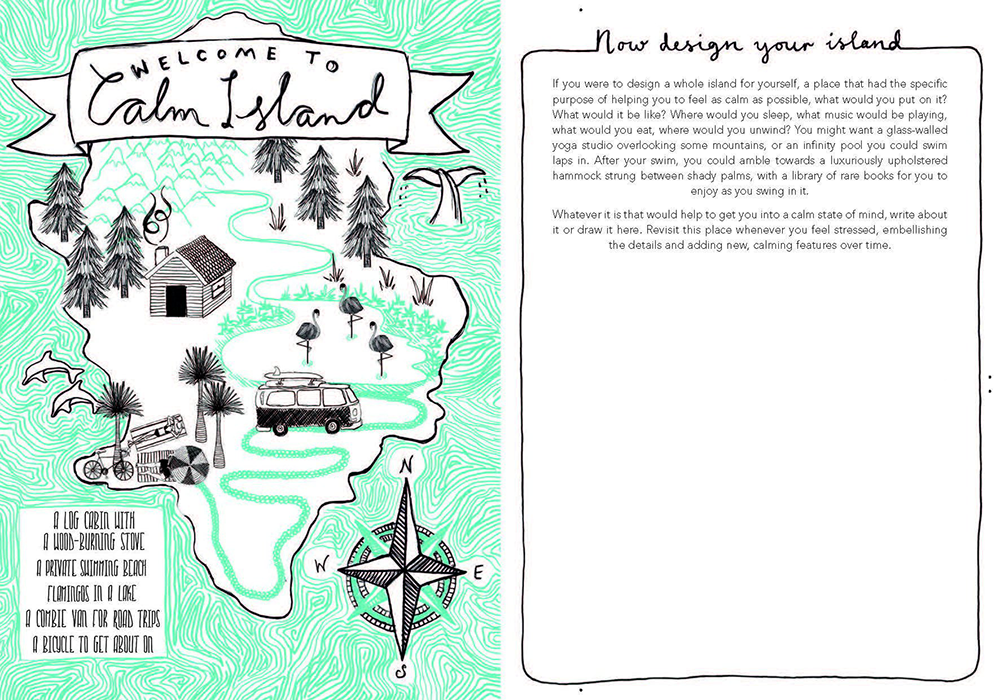 WELCOME TO
Calm Island
A LOG CABIN WITH
A WOOD-BURNING STOVE
A PRIVATE SWIMMING BEACH
FLAMINGOS IN A LAKE
A COMBIE VAN FOR ROAD TRIPS
A BICYCLE TO GET ABOUT ON
N
W
E
S
Now design your island
If you were to design a whole island for yourself, a place that had the specific
purpose of helping you to feel as calm as possible, what would you put on it?
What would it be like? Where would you sleep, what music would be playing,
what would you eat, where would you unwind? You might want a glass-walled
yoga studio overlooking some mountains, or an infinity pool you could swim
laps in. After your swim, you could amble towards a luxuriously upholstered
hammock strung between shady palms, with a library of rare books for you to
enjoy as you swing in it.
Whatever it is that would help to get you into a calm state of mind, write about
it or draw it here. Revisit this place whenever you feel stressed, embellishing
the details and adding new, calming features over time.